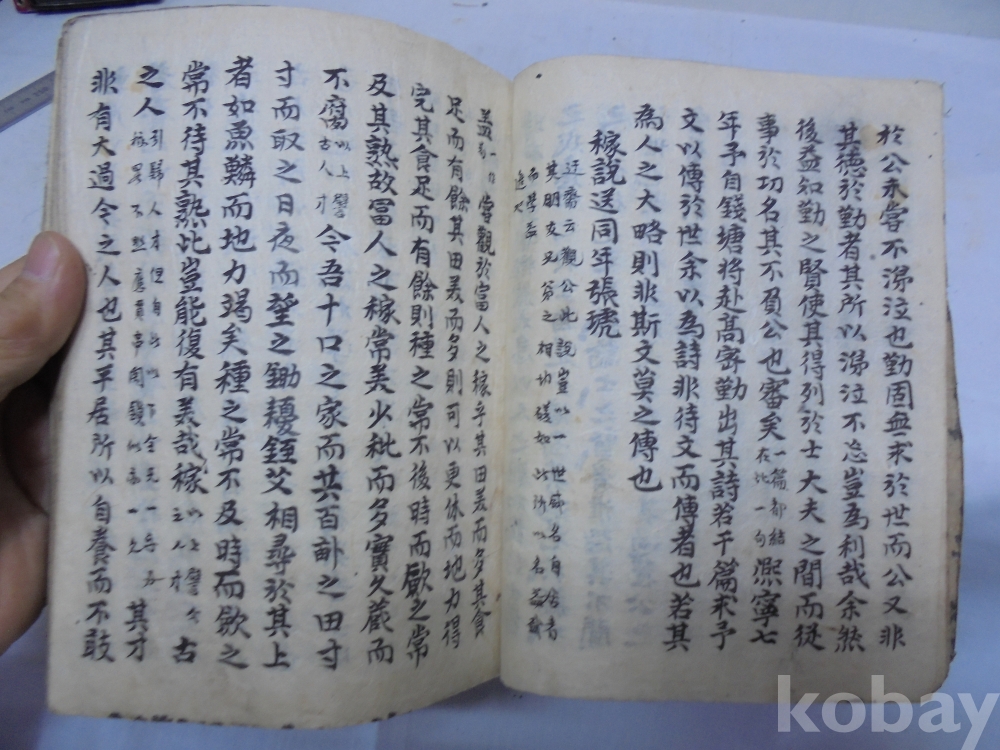 於公未嘗不涕泣也勤固無求於世而公又非
其德於勤者其所以涕泣不忘豈為利哉余然
後益知勤之賢使其得列於士大夫之間而從
事於功名其不負公也審矣一篇都結在此一句熙寧七
年予自錢塘將赴高密勤出其詩若干篇求予
文以傳於世余以為詩非待文而傳者也若其
為人之大略則非斯文莫之傳也
稼說送同年張琥
迂齋云觀公此說豈以一世盛名自居者
其朋友兄弟之相切磋如此所以名益
而學益
嘗觀於富人之稼乎其田美而多其食
足而有餘其田美而多則可以更休而地力得
完其食足而有餘則種之常不後時而斂之常
及其熟故富人之稼常美少秕而多實久藏而
不腐以上譬古人才今吾十口之家而共百畝之田寸
寸而取之日夜而望之鋤耰銍艾相尋於其上
者如魚鱗而地力竭矣種之常不及時而斂之
常不待其熟比豈能復有美哉稼以上譬今之人才古
之人引歸人才其才
非有大過今之人也其平居所以自養而不敢
kobay